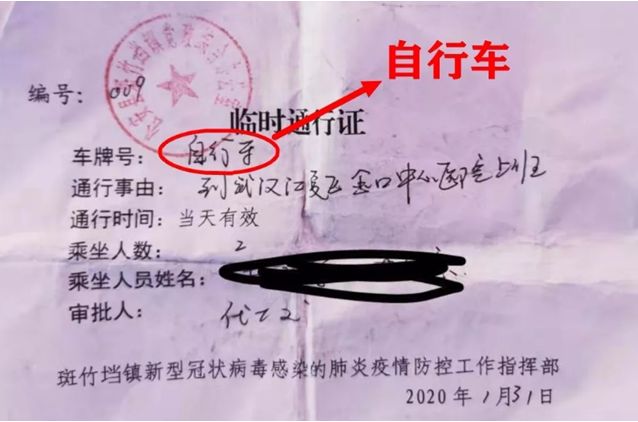 自行车
编号：009
临时通行证
车牌号：自行车
通行事由：到武汉江夏区金口中心医院上班
通行时间：当天有效
乘坐人数：2
乘坐人员姓名：
审批人：
斑竹垱镇新型冠状病毒感染的肺炎疫情防控工作指挥部
2020年1月31日